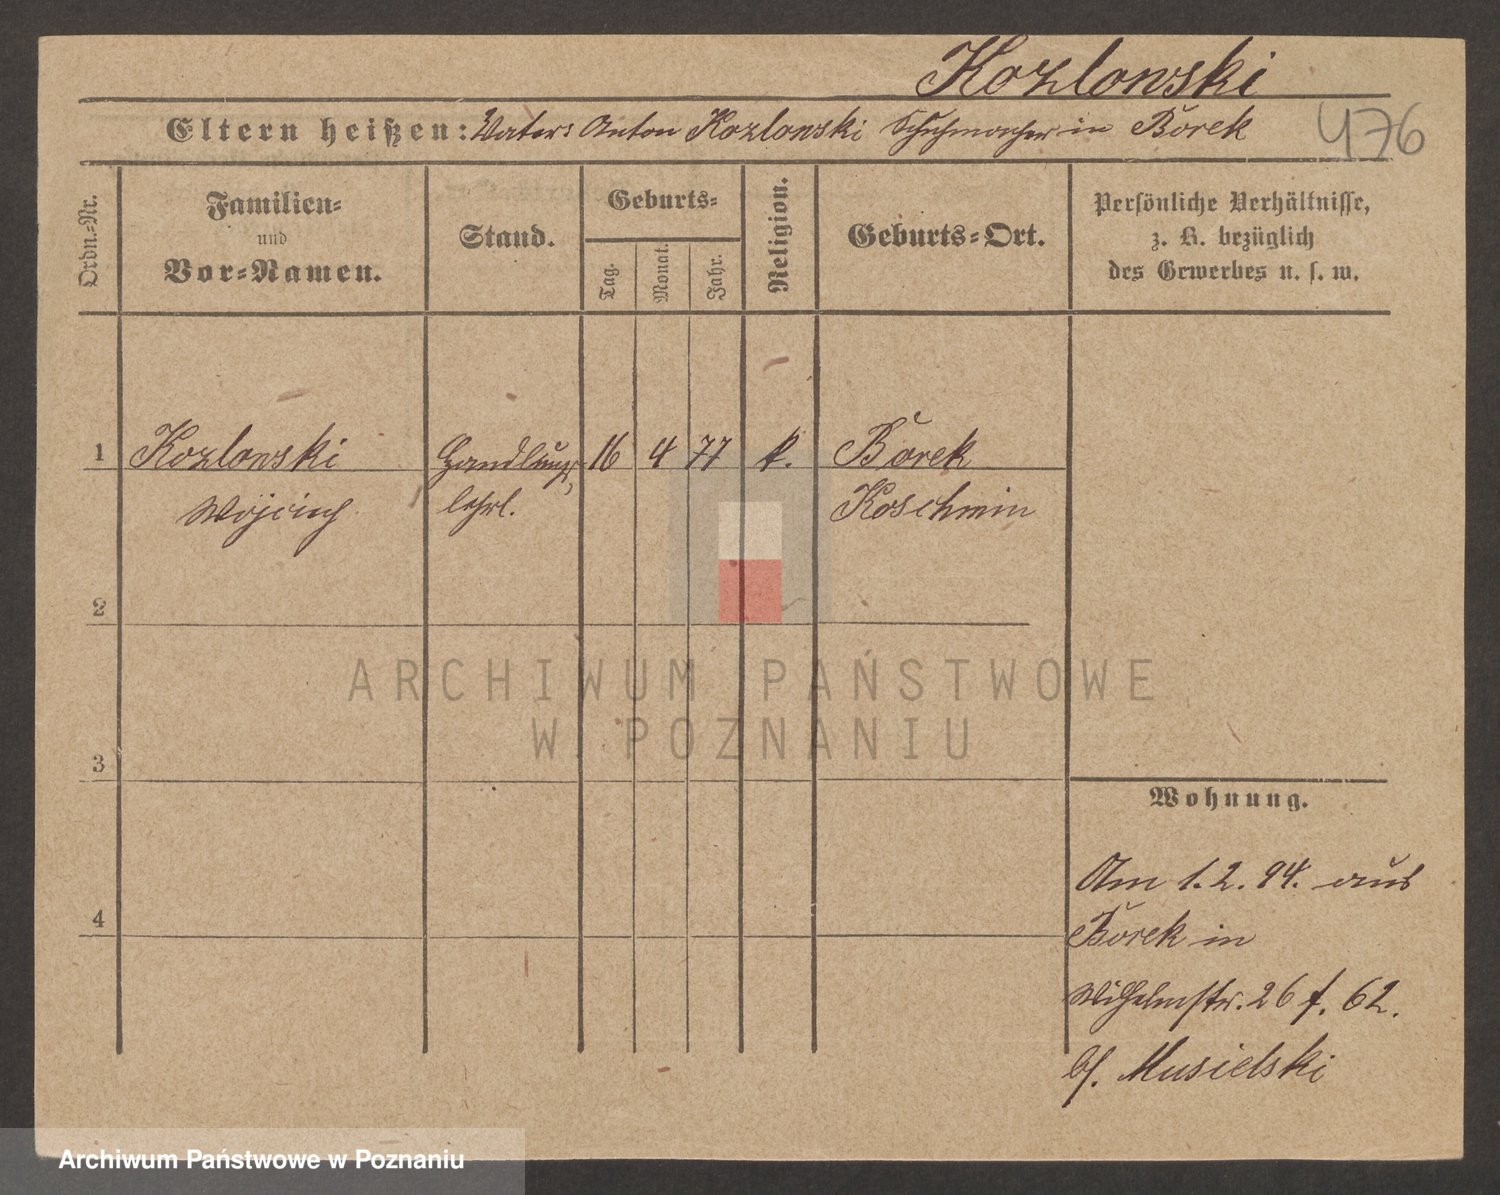 Kozlowski
Eltern heißen: Vater: Anton Kozlowski Schuhmacher in Borek
476
Ordn.-Nr.
Familien-
und
Vor-Namen.
Stand.
Geburts-
Tag.
Monat.
Jahr.
Religion.
Geburts-Ort.
Persönliche Verhältnisse,
z. B. bezüglich
des Gewerbes u. s. w.
1 Kozlowski Handlungs 16 4 77 k. Borek
Wojciech lehrl. Koschmin
2
ARCHIWUM PAŃSTWOWE
W POZNANIU
3
Wohnung.
Am 1.2.94. aus
4
Borek in
Wilhelmstr. 26 f. 62.
bf. Musielski
Archiwum Państwowe w Poznaniu